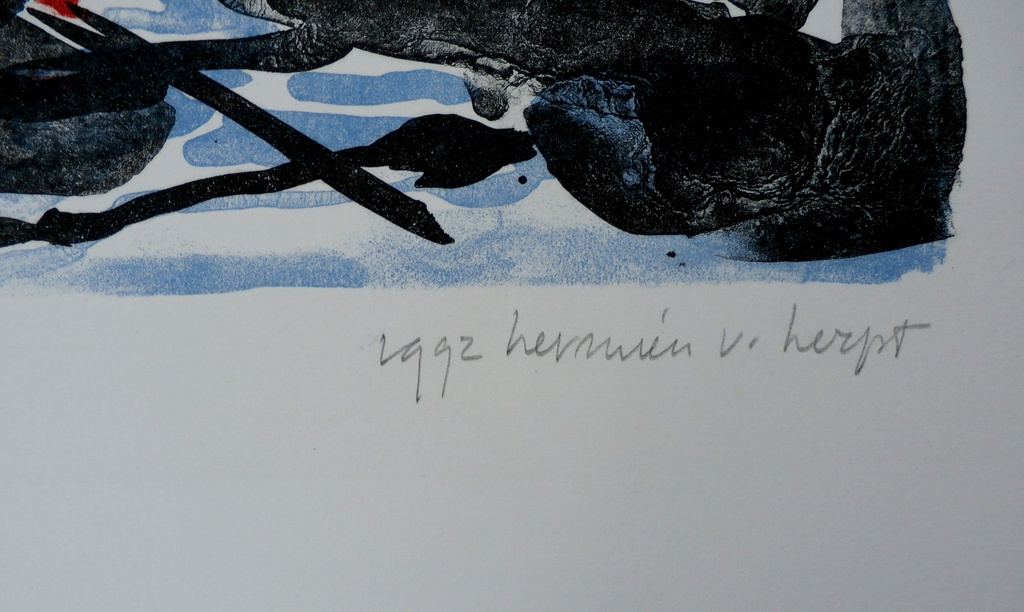 1992 hermién v. herpt